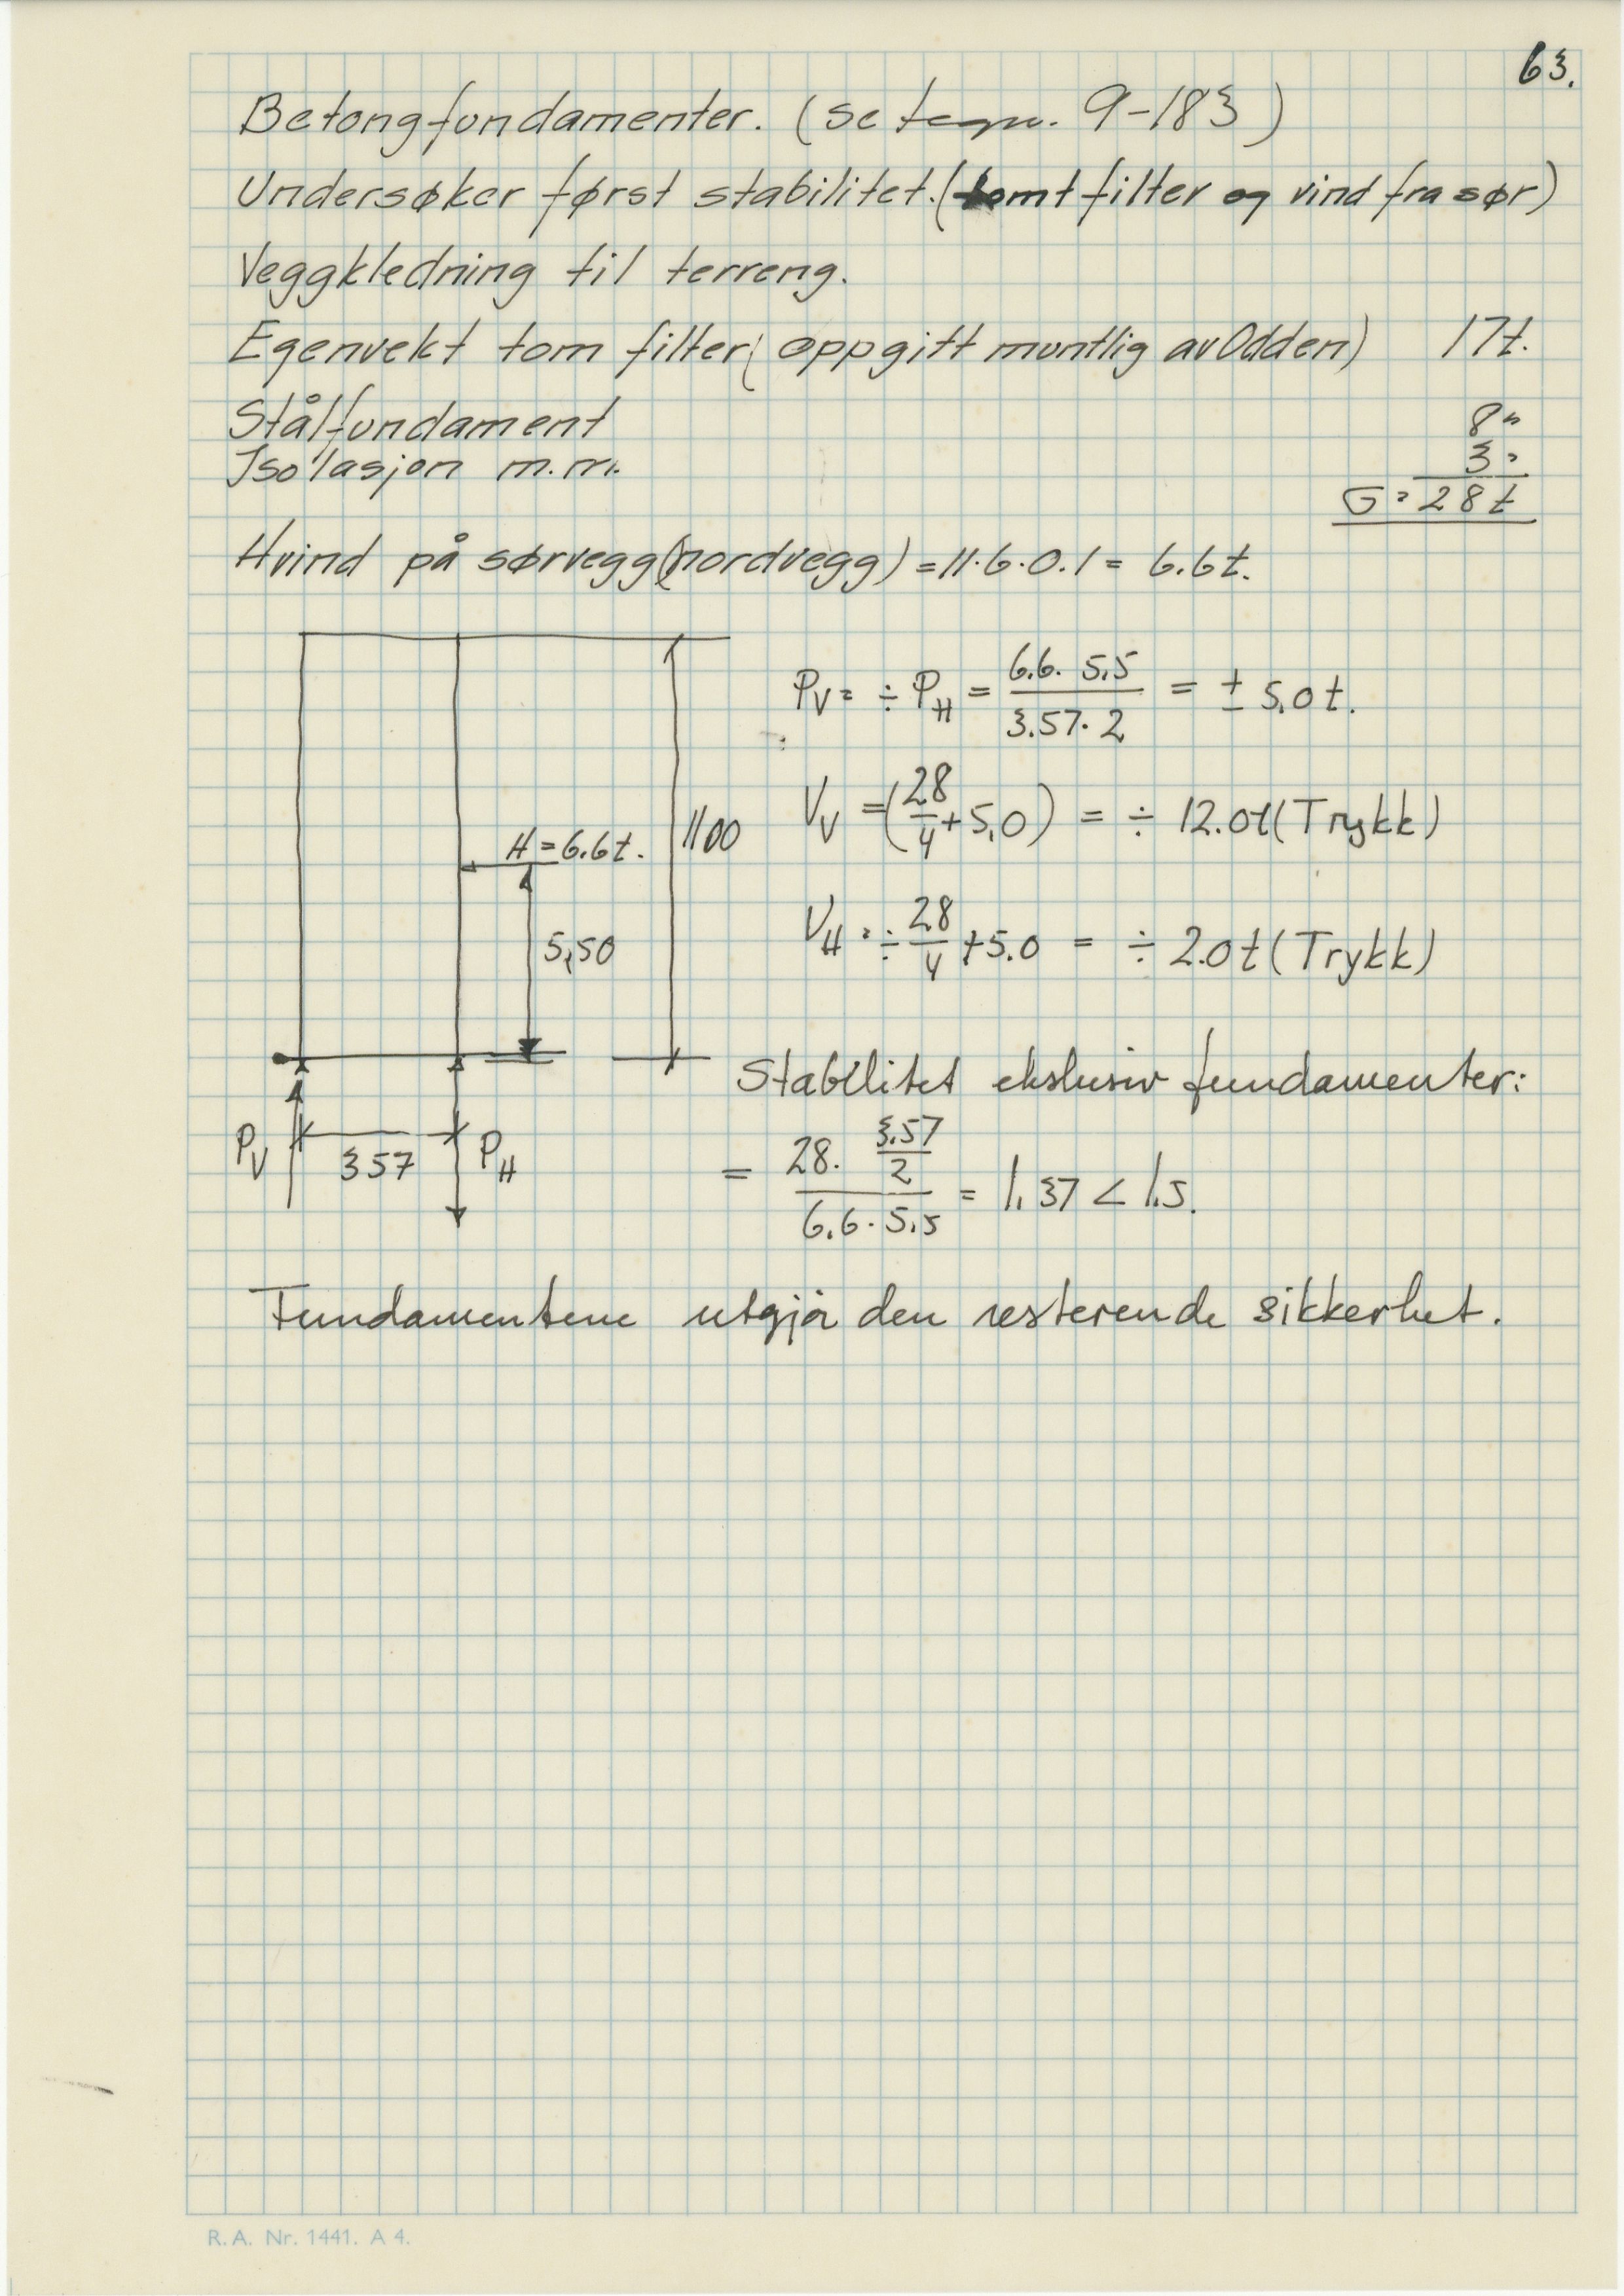 63.
Betongfundamenter. (se tegn. 9-183)
Undersøker først stabilitet. (tomt filter og vind fra sør)
Veggkledning til terreng.
Egenvekt tom filter (oppgitt muntlig av Odden) 17t.
Stålfundament 8"
Isolasjon m.m. 3"
G = 28t
Hvind på sørvegg (nordvegg) = 11·6·0.1 = 6.6t.
PV = ÷ PH = 6.6 · 5,5 / 3.57 · 2 = ± 5,0 t.
VV = (28/4 + 5,0) = ÷ 12.0t (Trykk)
H = 6.6t. 1100
VH = ÷ 28/4 + 5.0 = ÷ 2.0t (Trykk)
5,50
Stabilitet ekslusiv fundamenter:
PV 357 PH
= 28 · 3.57/2 / 6,6 · 5,5 = 1,37 < 1,5.
Fundamentene utgjør den resterende sikkerhet.
R.A. Nr. 1441. A 4.